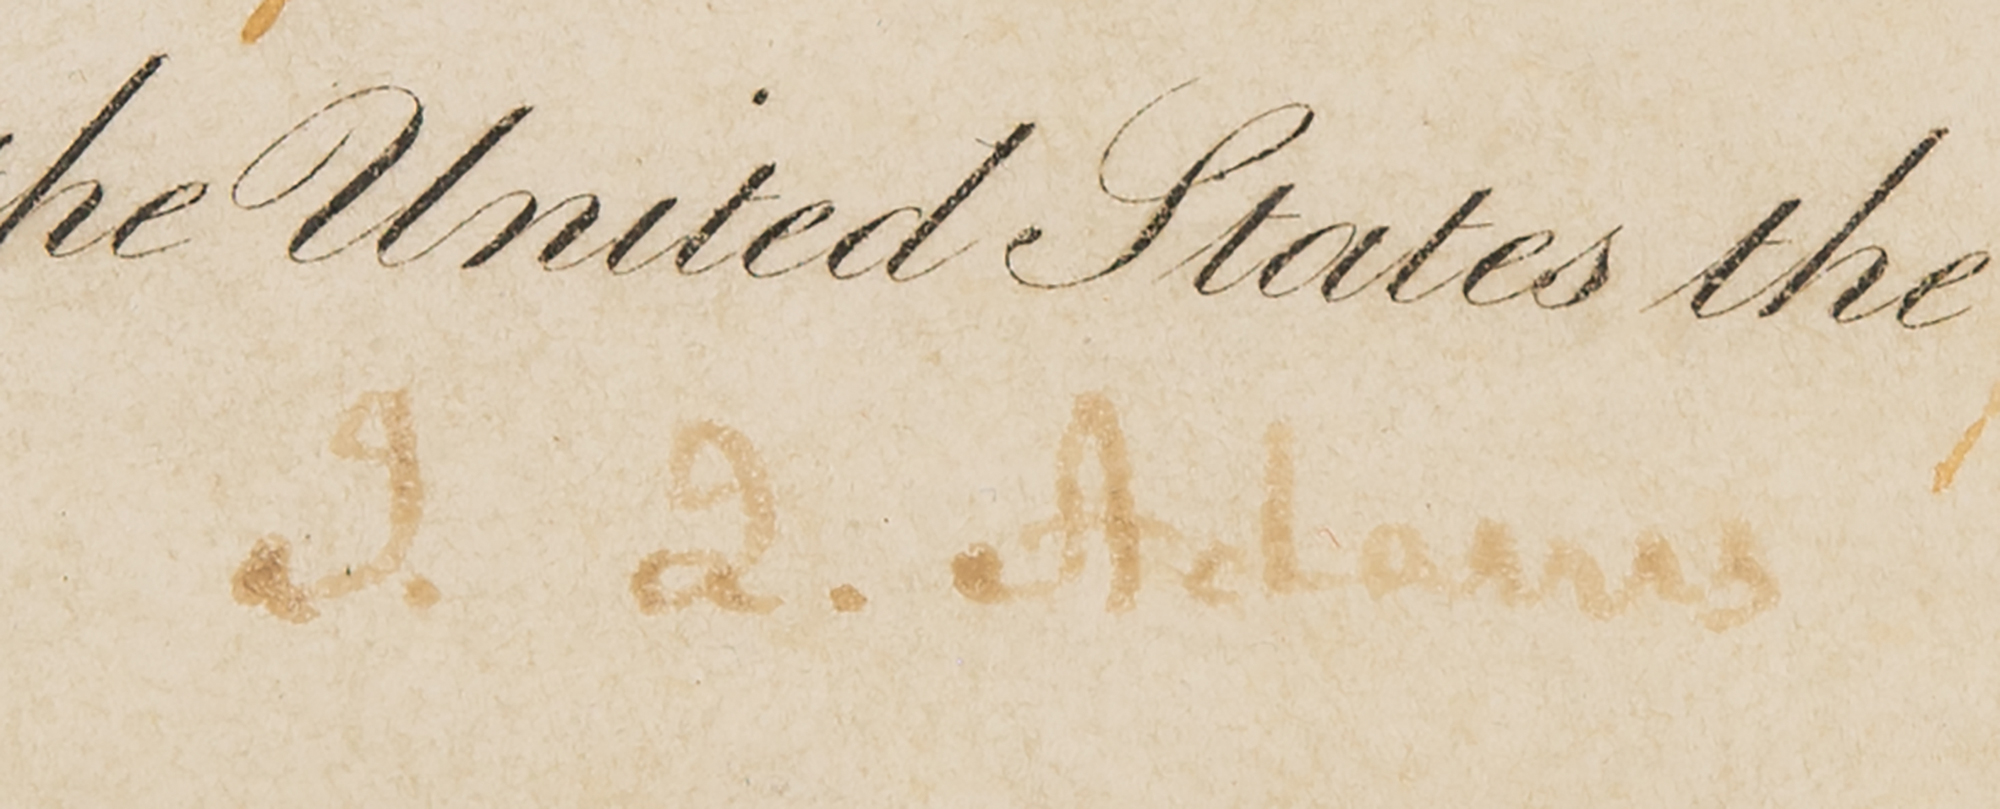 he United States the
J. Q. Adams